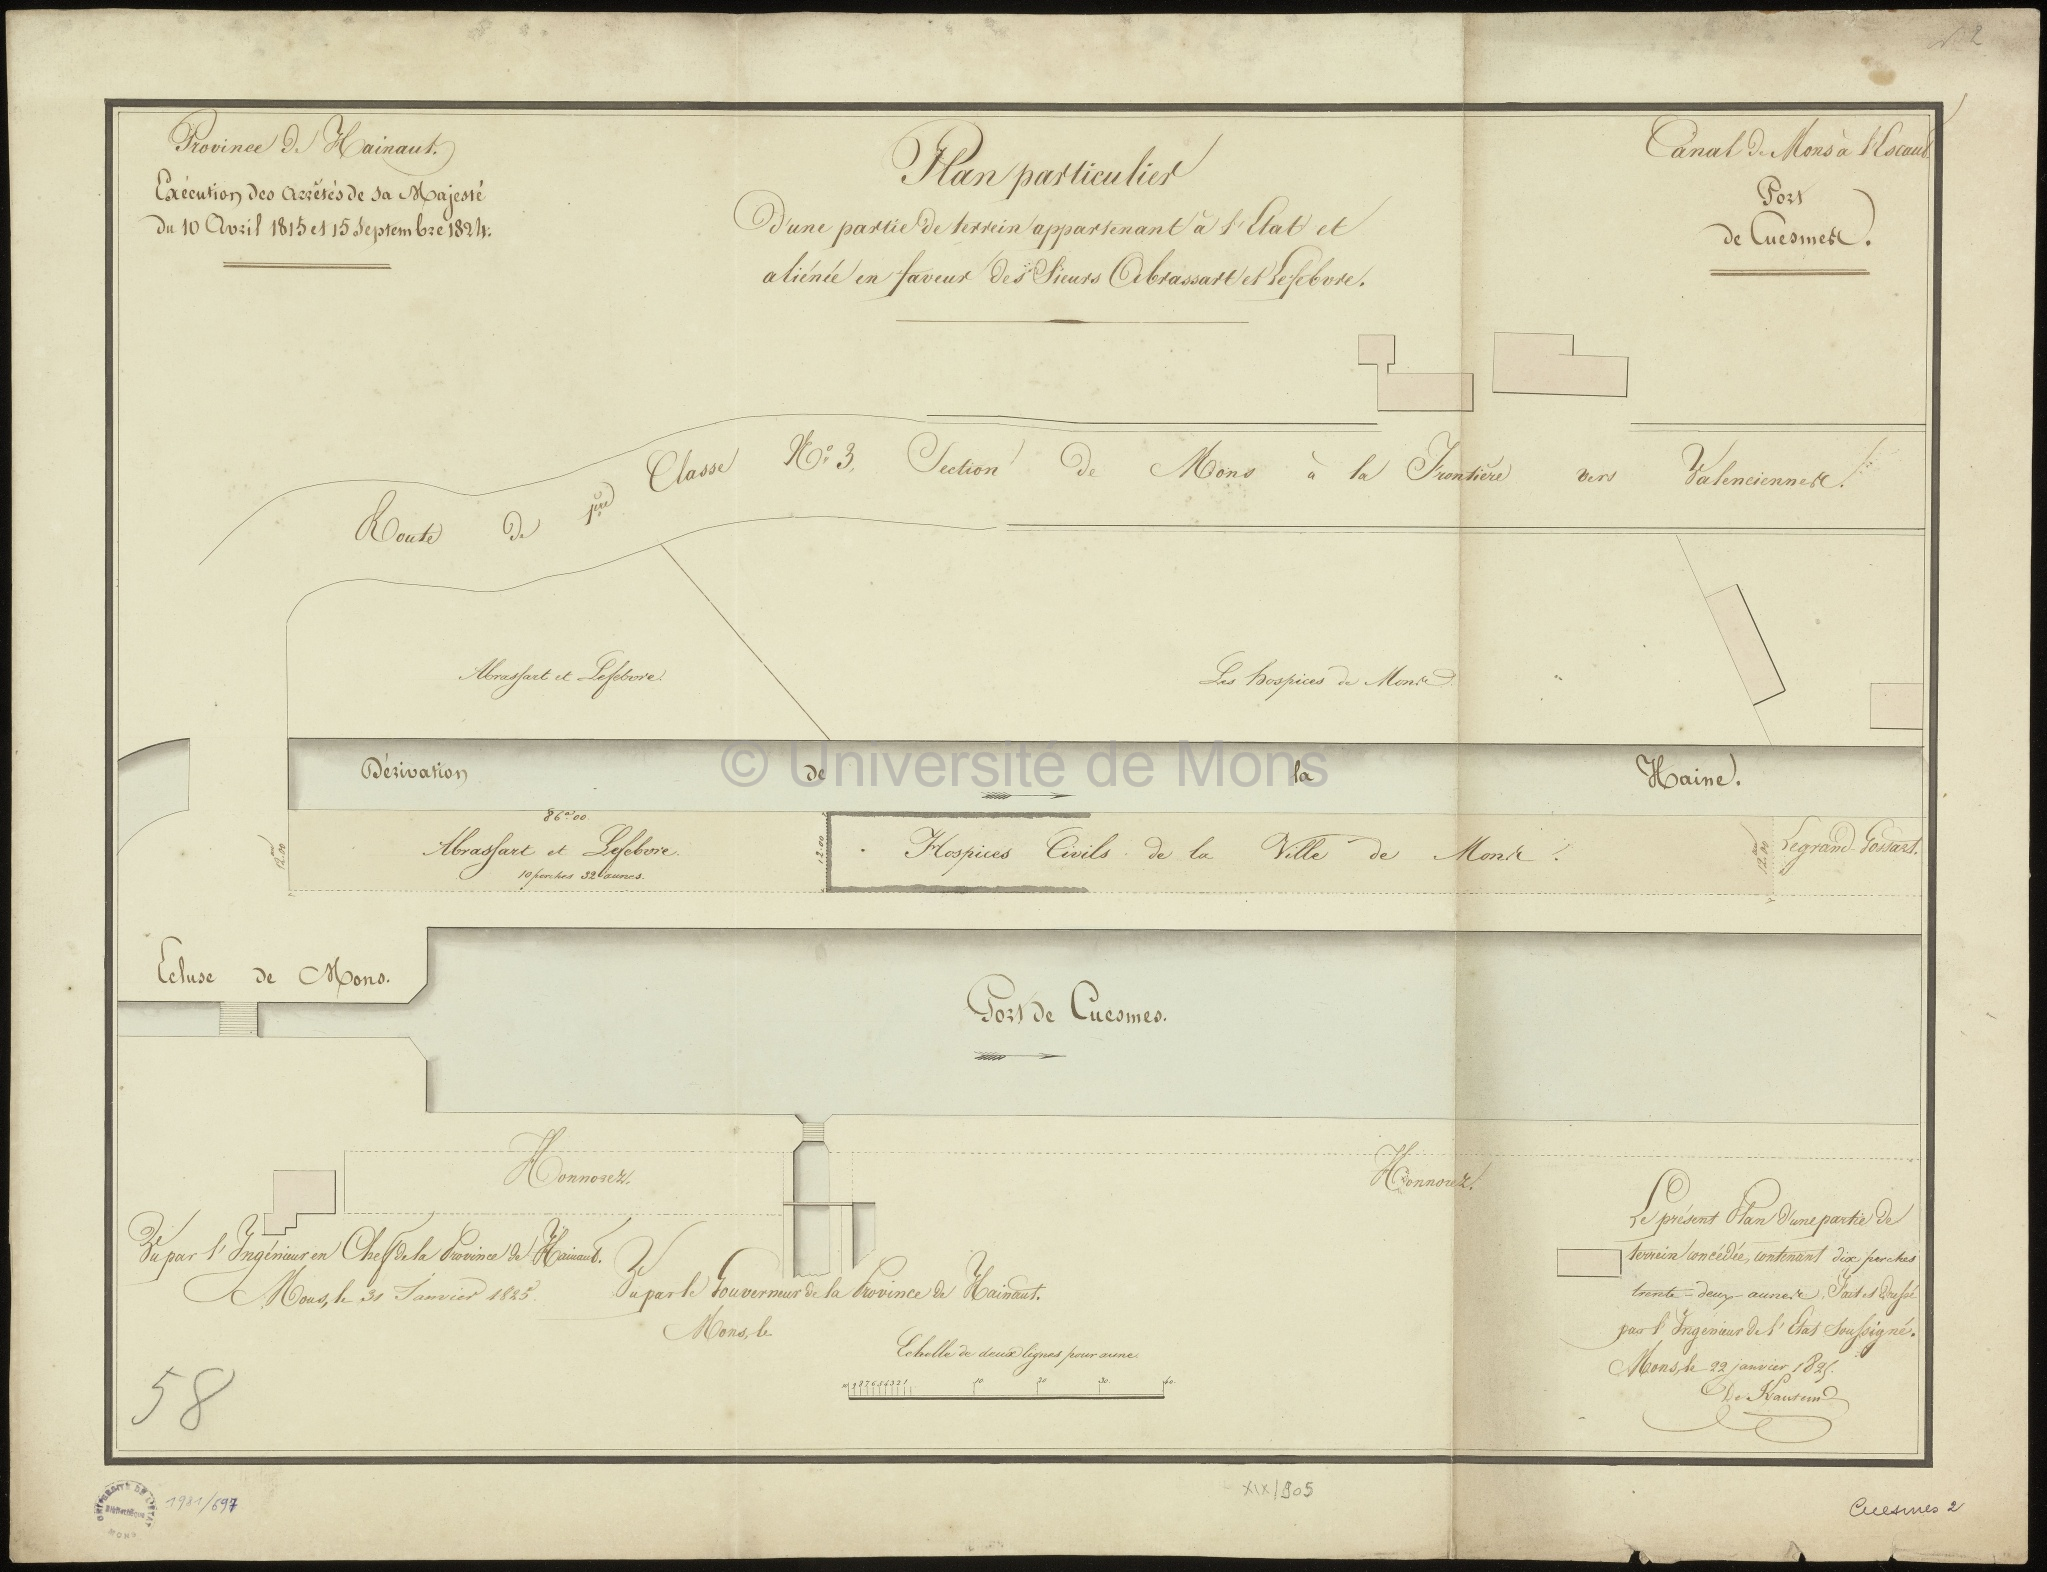 Province de Hainaut.
Exécution des arrêtés de sa Majesté
du 10 Avril 1815 et 15 Septembre 1824.
Plan particulier
D'une partie de terrein appartenant à l'Etat et
aliénée en faveur des Sieurs Abrassart et Lefebvre.
Canal de Mons à l'Escaut
Port
de Cuesmes.
Route de 1ere Classe No. 3, Section de Mons à la Frontière vers Valenciennes.
Abrassart et Lefebvre.
Les hospices de Mons
Dérivation de la Haine.
© Université de Mons
86 au 00
12.00
Abrassart et Lefebvre.
10 perches 32 aunes.
12.00
Hospices Civils de la Ville de Mons.
12.00
Legrand-Gossart.
Ecluse de Mons.
Port de Cuesmes.
Honnorez.
Honnorez.
Vu par l'Ingénieur en Chef de la Province de Hainaut.
Mons, le 31 Janvier 1825
Vu par le Gouverneur de la Province de Hainaut.
Mons, le
Echelle de deux lignes pour aune
10 9 8 7 6 5 4 3 2 1 10 20 30 40
Le présent Plan d'une partie de
terrein concédée, contenant dix perches
trente-deux aunes. Fait et dressé
par l'Ingénieur de l'Etat soussigné.
Mons, le 22 janvier 1825.
58
UNIVERSITÉ DE L'ETAT
Bibliothèque
MONS
1981/697
XIX/905
Cuesmes 2